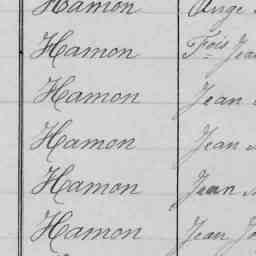 Hamon Ange
Hamon Fois Jean
Hamon Jean
Hamon Jean
Hamon Jean
Hamon Jean